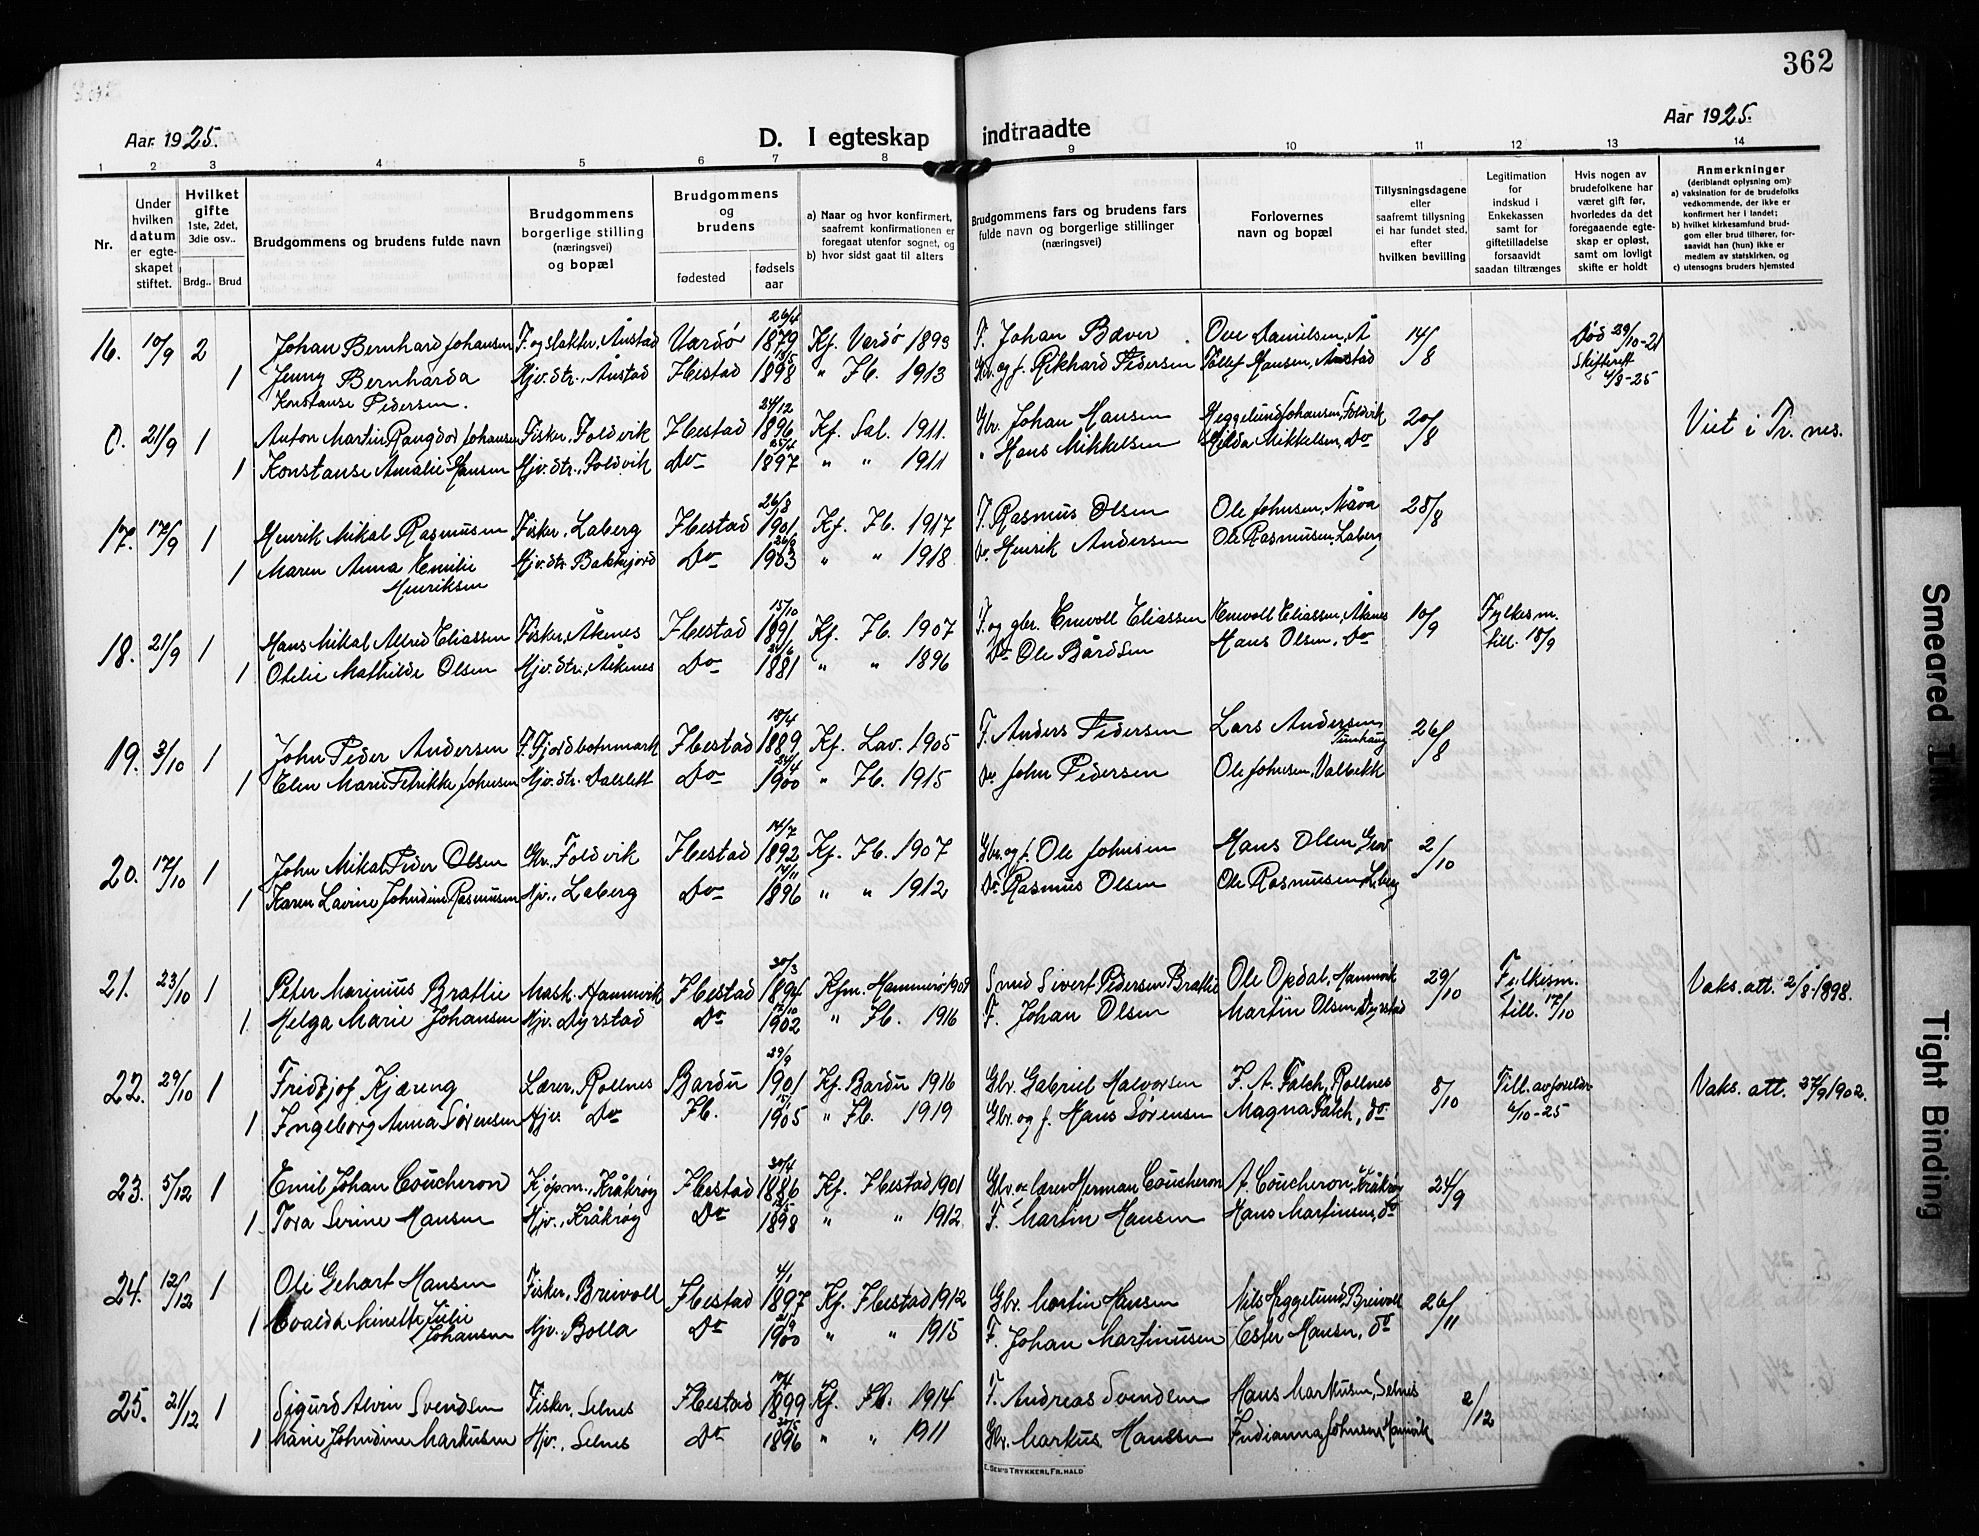 362
Aar 1925.
D. I egteskap indtraadte
Aar 1925.
1 2 3 4 5 6 7 8 9 10 11 12 13 14
Nr.
Under hvilken datum er egteskapet stiftet.
Hvilket gifte 1ste, 2det, 3die osv..
Brdg.. Brud
Brudgommens og brudens fulde navn
Brudgommens borgerlige stilling (næringsvei) og bopæl
Brudgommens og brudens
fødested
fødsels aar
a) Naar og hvor konfirmert, saafremt konfirmationen er foregaat utenfor sognet, og
b) hvor sidst gaat til alters
Brudgommens fars og brudens fars fulde navn og borgerlige stillinger (næringsvei)
Forlovernes navn og bopæl
Tillysningsdagene eller saafremt tillysning ei har fundet sted, efter hvilken bevilling
Legitimation for indskud i Enkekassen samt for giftetilladelse forsaavidt saadan tiltrænges
Hvis nogen av brudefolkene har været gift før, hvorledes da det foregaaende egteskap er opløst, samt om lovligt skifte er holdt
Anmerkninger (deriblandt oplysning om:
a) vaksination for de brudefolks vedkommende, der ikke er konfirmert her i landet;
b) hvilket kirkesamfund brudgom eller brud tilhører, forsaavidt han (hun) ikke er medlem av statskirken, og
c) utensogns bruders hjemsted
16. 10/9 2 Johan Bernhard Johansen F. og slakter, Ånstad Vardø 26/4 1879 Kf. Vardø 1893 F. Johan Bæver Ove Danielsen, Å 14/8 Død 29/10-21
1 Jenny Bernharda Hjv. dtr., Ånstad Ibestad 1898 " Ib. 1913 Gbr. og f. Rikhard Pedersen Tollef Hansen, Ånstad Skifterett 4/8-25
Konstanse Pedersen.
0. 21/9 1 Anton Martin Rangdor Johansen Fisker, Foldvik Ibestad 24/12 1896 Kf. Sal. 1911. Gbr. Johan Hansen Heggelund Johansen, Foldvik 20/8 Viet i Tr. nes.
1 Konstanse Amalie Hansen Hjv. dtr., Foldvik Do 1897 " " 1911 " Hans Mikkelsen Hilda Mikkelsen, Do
17. 17/9 1 Henrik Mikal Rasmussen Fisker, Laberg Ibestad 26/8 1901 Kf. Ib. 1917 F. Rasmus Olsen Ole Johnsen, Måva 28/8
1 Maren Anna Emilie Hjv. dtr. Bakkejord Do 1903 " " 1918 Do. Henrik Andersen Ole Rasmussen, Laberg
Henriksen
18. 21/9 1 Hans Mikal Alfred Eliassen Fisker, Åknes Ibestad 15/10 1891 Kf. Ib. 1907 F. og gbr. Enevoll Eliassen Enevoll Eliassen, Åknes 10/9 Fylkesm.
1 Otelie Mathilde Olsen Hjv. dtr., Åkenes Do 1881 " " 1896 Do Ole Bårdsen Hans Olsen, Do till. 18/9
19. 3/10 1 John Peder Andersen F. Fjordbotnmark Ibestad 18/4 1889 Kf. Lav. 1905 F. Anders Pedersen Lars Andersen, 26/8
1 Elen Marie Petrikke Johnsen Hjv. dtr. Dalslett Do 1900 " Ib. 1915 Do John Pedersen Ole Johnsen, Valbekk
20. 17/10 1 John Mikal Peder Olsen Gbr. Foldvik Ibestad 14/7 1892 Kf. Ib. 1907 Gbr. og f. Ole Johnsen Hans Olsen, Grov 2/10
1 Karen Lavine Johndine Rasmussen Hjv., Laberg Do 1896 " " 1912 Do Rasmus Olsen Ole Rasmussen, Laberg
21. 23/10 1 Peter Marinius Bratlie Mask. Hamnvik Ibestad 30/3 1894 Kfm. Hammerø 1908 Smed Sivert Pedersen Bratlie Ole Opdal, Hamnvik 29/10 Fylkesm. Vaks. att. 2/8 1898.
1 Helga Marie Johansen Hjv. Dyrstad Do 1902 " Ib. 1916 F. Johan Olsen Martin Olsen, Dyrstad till. 17/10
22. 29/10 1 Fridtjof Kjæreng Lærer, Rollnes Bardu 29/9 1901 Kf. Bardu 1916 Gbr. Gabriel Halvorsen F. A. Falch, Rollnes 8/10 Till. av foreldr. Vaks. att. 27/9 1902.
1 Ingeborg Anna Sørensen Hjv. Do Ib. 1905 " Ib. 1919 Gbr. og f. Hans Sørensen Magna Falch, do. 6/10-25
23. 5/12 1 Emil Johan Coucheron Kjøpm., Kråkrøy Ibestad 30/4 1886 Kf. Ibestad 1901 Gbr. & lærer Herman Coucheron A. Coucheron, Kråkrøy 24/9
1 Tora Serine Hansen Hjv., Kråkrøy Do 1898 " " 1912 F. Martin Hansen Hans Martinsen, do
24. 12/12 1 Ole Gehart Hansen Fisker, Breivoll Ibestad 4/1 1897 Kf. Ibestad 1912 Gbr. Martin Hansen Nils Heggelund, Breivoll 26/11
1 Evalda Minette Julie Johansen Hjv., Bolla Do 1900 " " 1915 F. Johan Martinusen Ester Hansen, do
25. 21/12 1 Sigurd Alvin Svendsen Fisker, Selnes Ibestad 1899 Kf. Ib. 1914 F. Andreas Svendsen Hans Markusen, Selnes 2/12
1 Marie Johndine Markusen Hjv., Selnes Do 1896 " " 1911 Gbr. Markus Hansen Indianna Johnsen, Hamnvik
E. SEM'S TRYKKERI, FR.HALD
Smeared Ink
Tight Binding